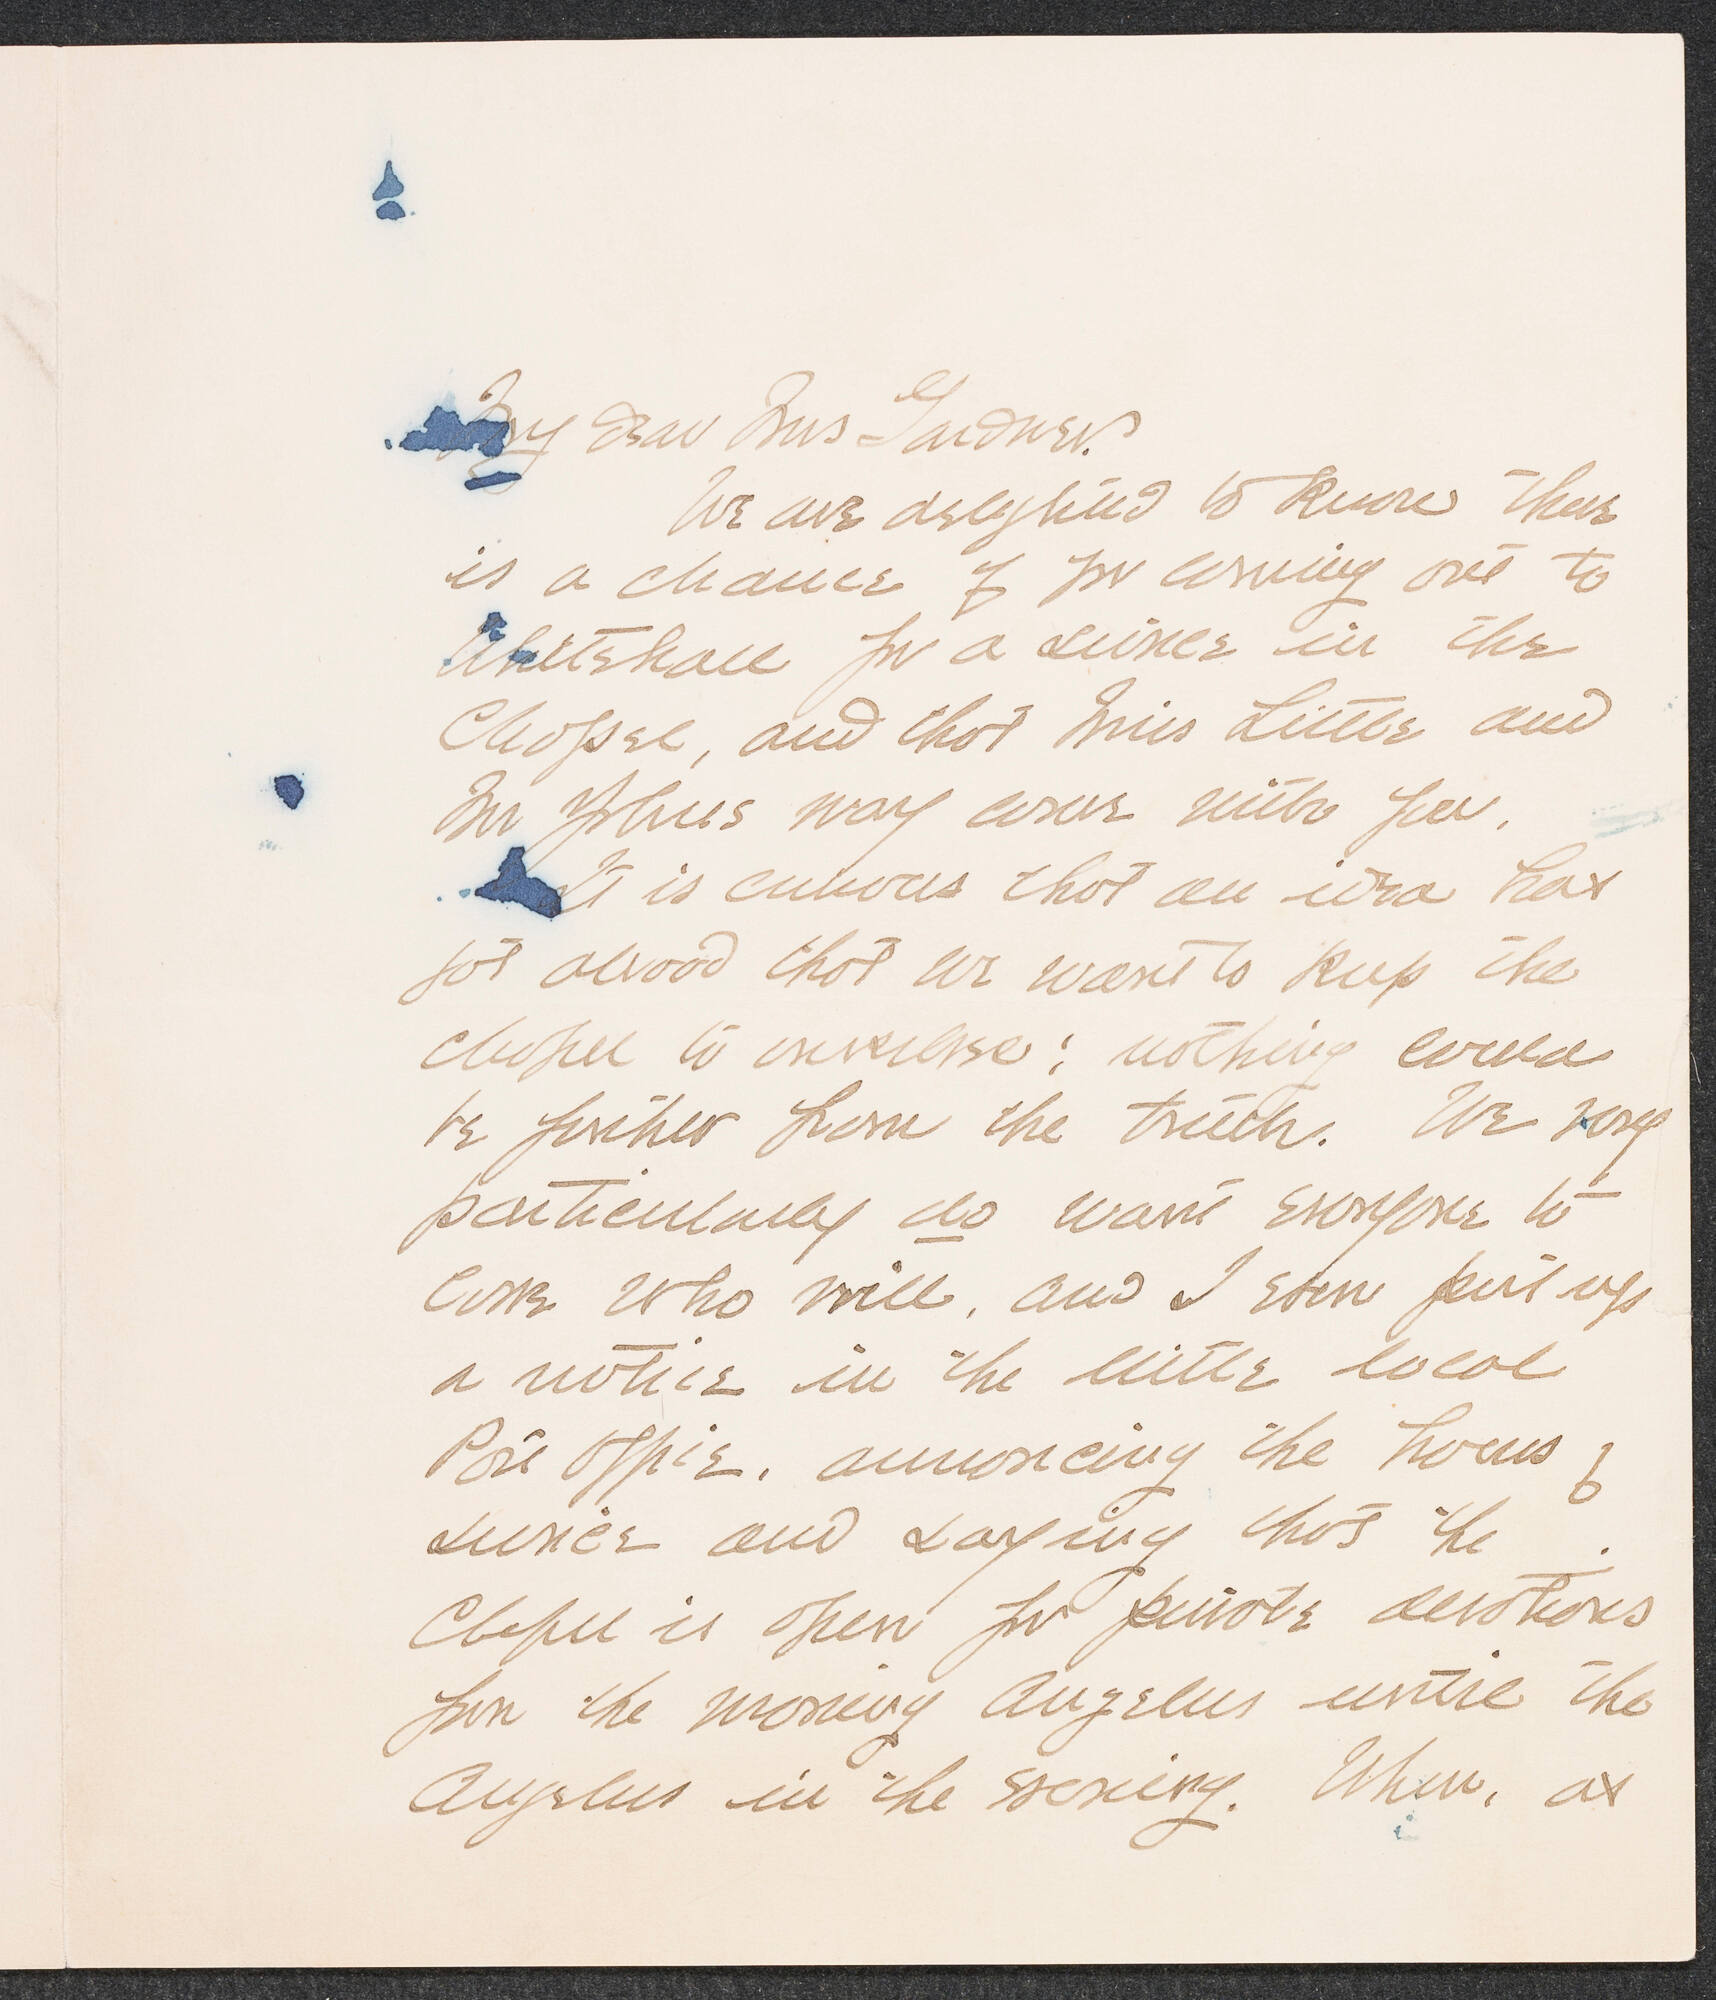 My dear Mrs Gardner.
We are delighted to know there
is a chance of yr coming out to
Whitehall for a service in the
Chapel, and that Miss Little and
Mr Johns may come with you.
It is curious that an idea has
got abroad that we want to keep the
chapel to ourselves; nothing could
be further from the truth. We very
particularly do want everyone to
come who will, and I even put up
a notice in the little local
Post Office, announcing the hours of
service and saying that the
Chapel is open for private devotions
from the morning Angelus until the
Angelus in the evening. When, as